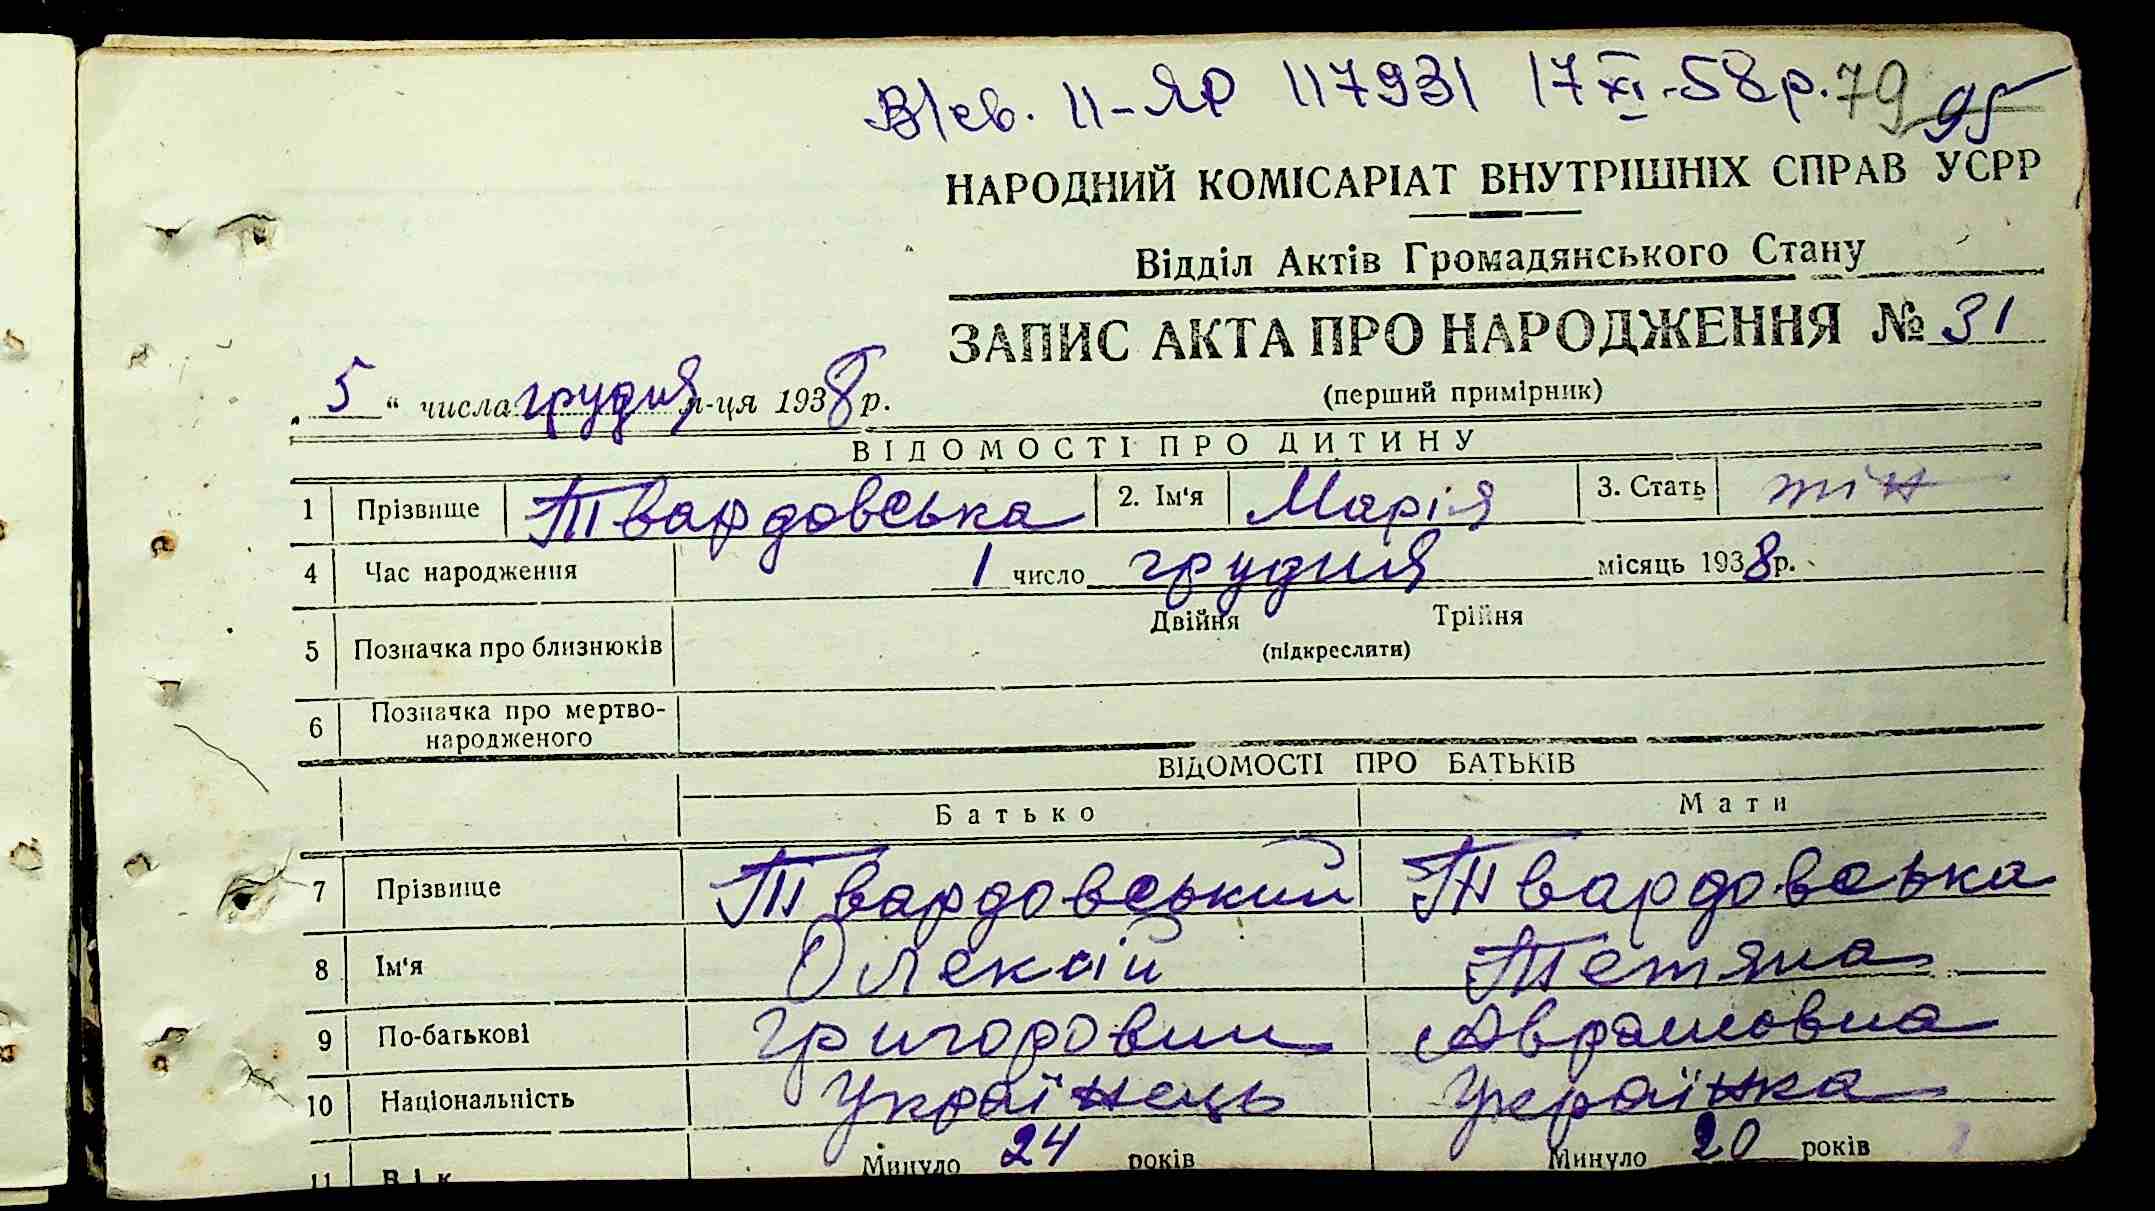 В/св. II-ЯР 117931 17 XI-58 р. 79 95
НАРОДНИЙ КОМІСАРІАТ ВНУТРІШНІХ СПРАВ УСРР
Відділ Актів Громадянського Стану
ЗАПИС АКТА ПРО НАРОДЖЕННЯ № 31
(перший примірник)
„ 5 “ числа грудня м-ця 1938 р.
ВІДОМОСТІ ПРО ДИТИНУ
1 Прізвище Твардовська 2. Ім'я Марія 3. Стать жін
4 Час народження 1 число грудня місяць 1938 р.
5 Позначка про близнюків Двійня Трійня
(підкреслити)
6 Позначка про мертво-
народженого
ВІДОМОСТІ ПРО БАТЬКІВ
Батько Мати
7 Прізвище Твардовський Твардовська
8 Ім'я Олексій Тетяна
9 По-батькові Григорович Аврамовна
10 Національність Українець Українка
11 Вік Минуло 24 років Минуло 20 років